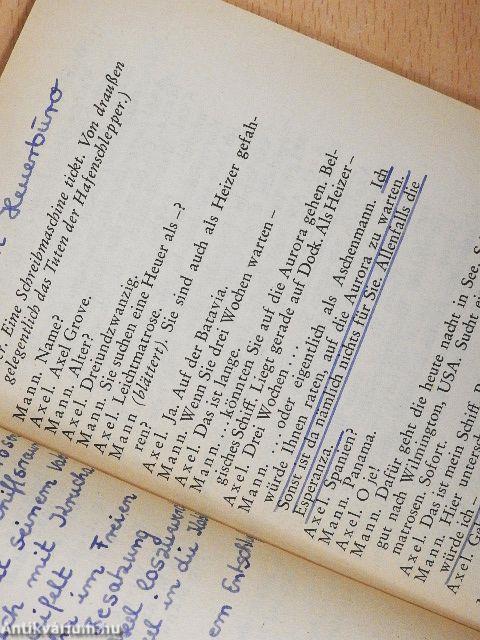 Heuerbüro
er. Eine Schreibmaschine tickt. Von draußen
gelegentlich das Tuten der Hafenschlepper.)
Mann. Name?
Axel. Axel Grove.
Mann. Alter?
Axel. Dreiundzwanzig.
Mann. Sie suchen eine Heuer als –?
Axel. Leichtmatrose.
Mann (blättert). Sie sind auch als Heizer gefah-
ren?
Axel. Ja. Auf der Batavia.
Mann. Wenn Sie drei Wochen warten –
Axel. Das ist lange.
Mann. ... könnten Sie auf die Aurora gehen. Bel-
gisches Schiff. Liegt gerade auf Dock. Als Heizer –
Axel. Drei Wochen ...
Mann. ... oder eigentlich als Aschenmann. Ich
würde Ihnen raten, auf die Aurora zu warten.
Sonst ist da nämlich nichts für Sie. Allenfalls die
Esperanza.
Axel. Spanien?
Mann. Panama.
Axel. O je!
Mann. Dafür geht die heute nacht in See.
gut nach Wilmington, USA. Sucht
matrosen. Sofort.
Axel. Das ist mein Schiff.
Mann. Hier untersch
würde ich –
Axel.
seinem
mit
im Freien
Besatzung
in die
em
Antikvárium.hu